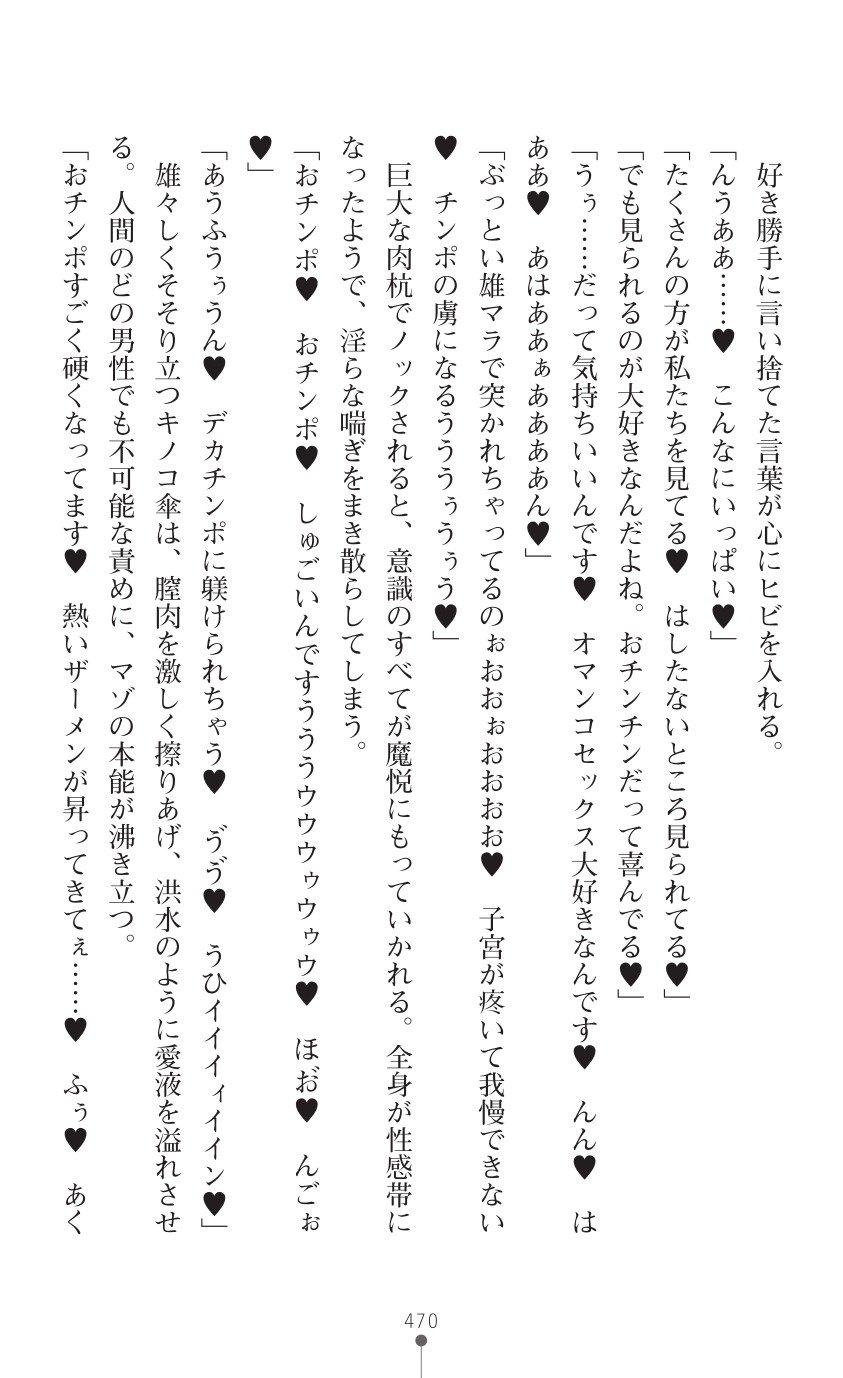 好き勝手に言い捨てた言葉が心にヒビを入れる。
「んうああ……♥　こんなにいっぱい♥」
「たくさんの方が私たちを見てる♥　はしたないところ見られてる♥」
「でも見られるのが大好きなんだよね。おチンチンだって喜んでる♥」
「うぅ……だって気持ちいいんです♥　オマンコセックス大好きなんです♥　んん♥　は
ああ♥　あはああぁああああん♥」
「ぶっとい雄マラで突かれちゃってるのぉおおぉおおおお♥　子宮が疼いて我慢できない
♥　チンポの虜になるうううぅうぅう♥」
巨大な肉杭でノックされると、意識のすべてが魔悦にもっていかれる。全身が性感帯に
なったようで、淫らな喘ぎをまき散らしてしまう。
「おチンポ♥　おチンポ♥　しゅごいんですうううウウウゥウゥウ♥　ほお゛♥　んごぉ
♥」
「あうふうぅうん♥　デカチンポに躾けられちゃう♥　う゛う゛♥　うひイイイィイイン♥」
雄々しくそそり立つキノコ傘は、膣肉を激しく擦りあげ、洪水のように愛液を溢れさせ
る。人間のどの男性でも不可能な責めに、マゾの本能が沸き立つ。
「おチンポすごく硬くなってます♥　熱いザーメンが昇ってきてぇ……♥　ふぅ♥　あく
470